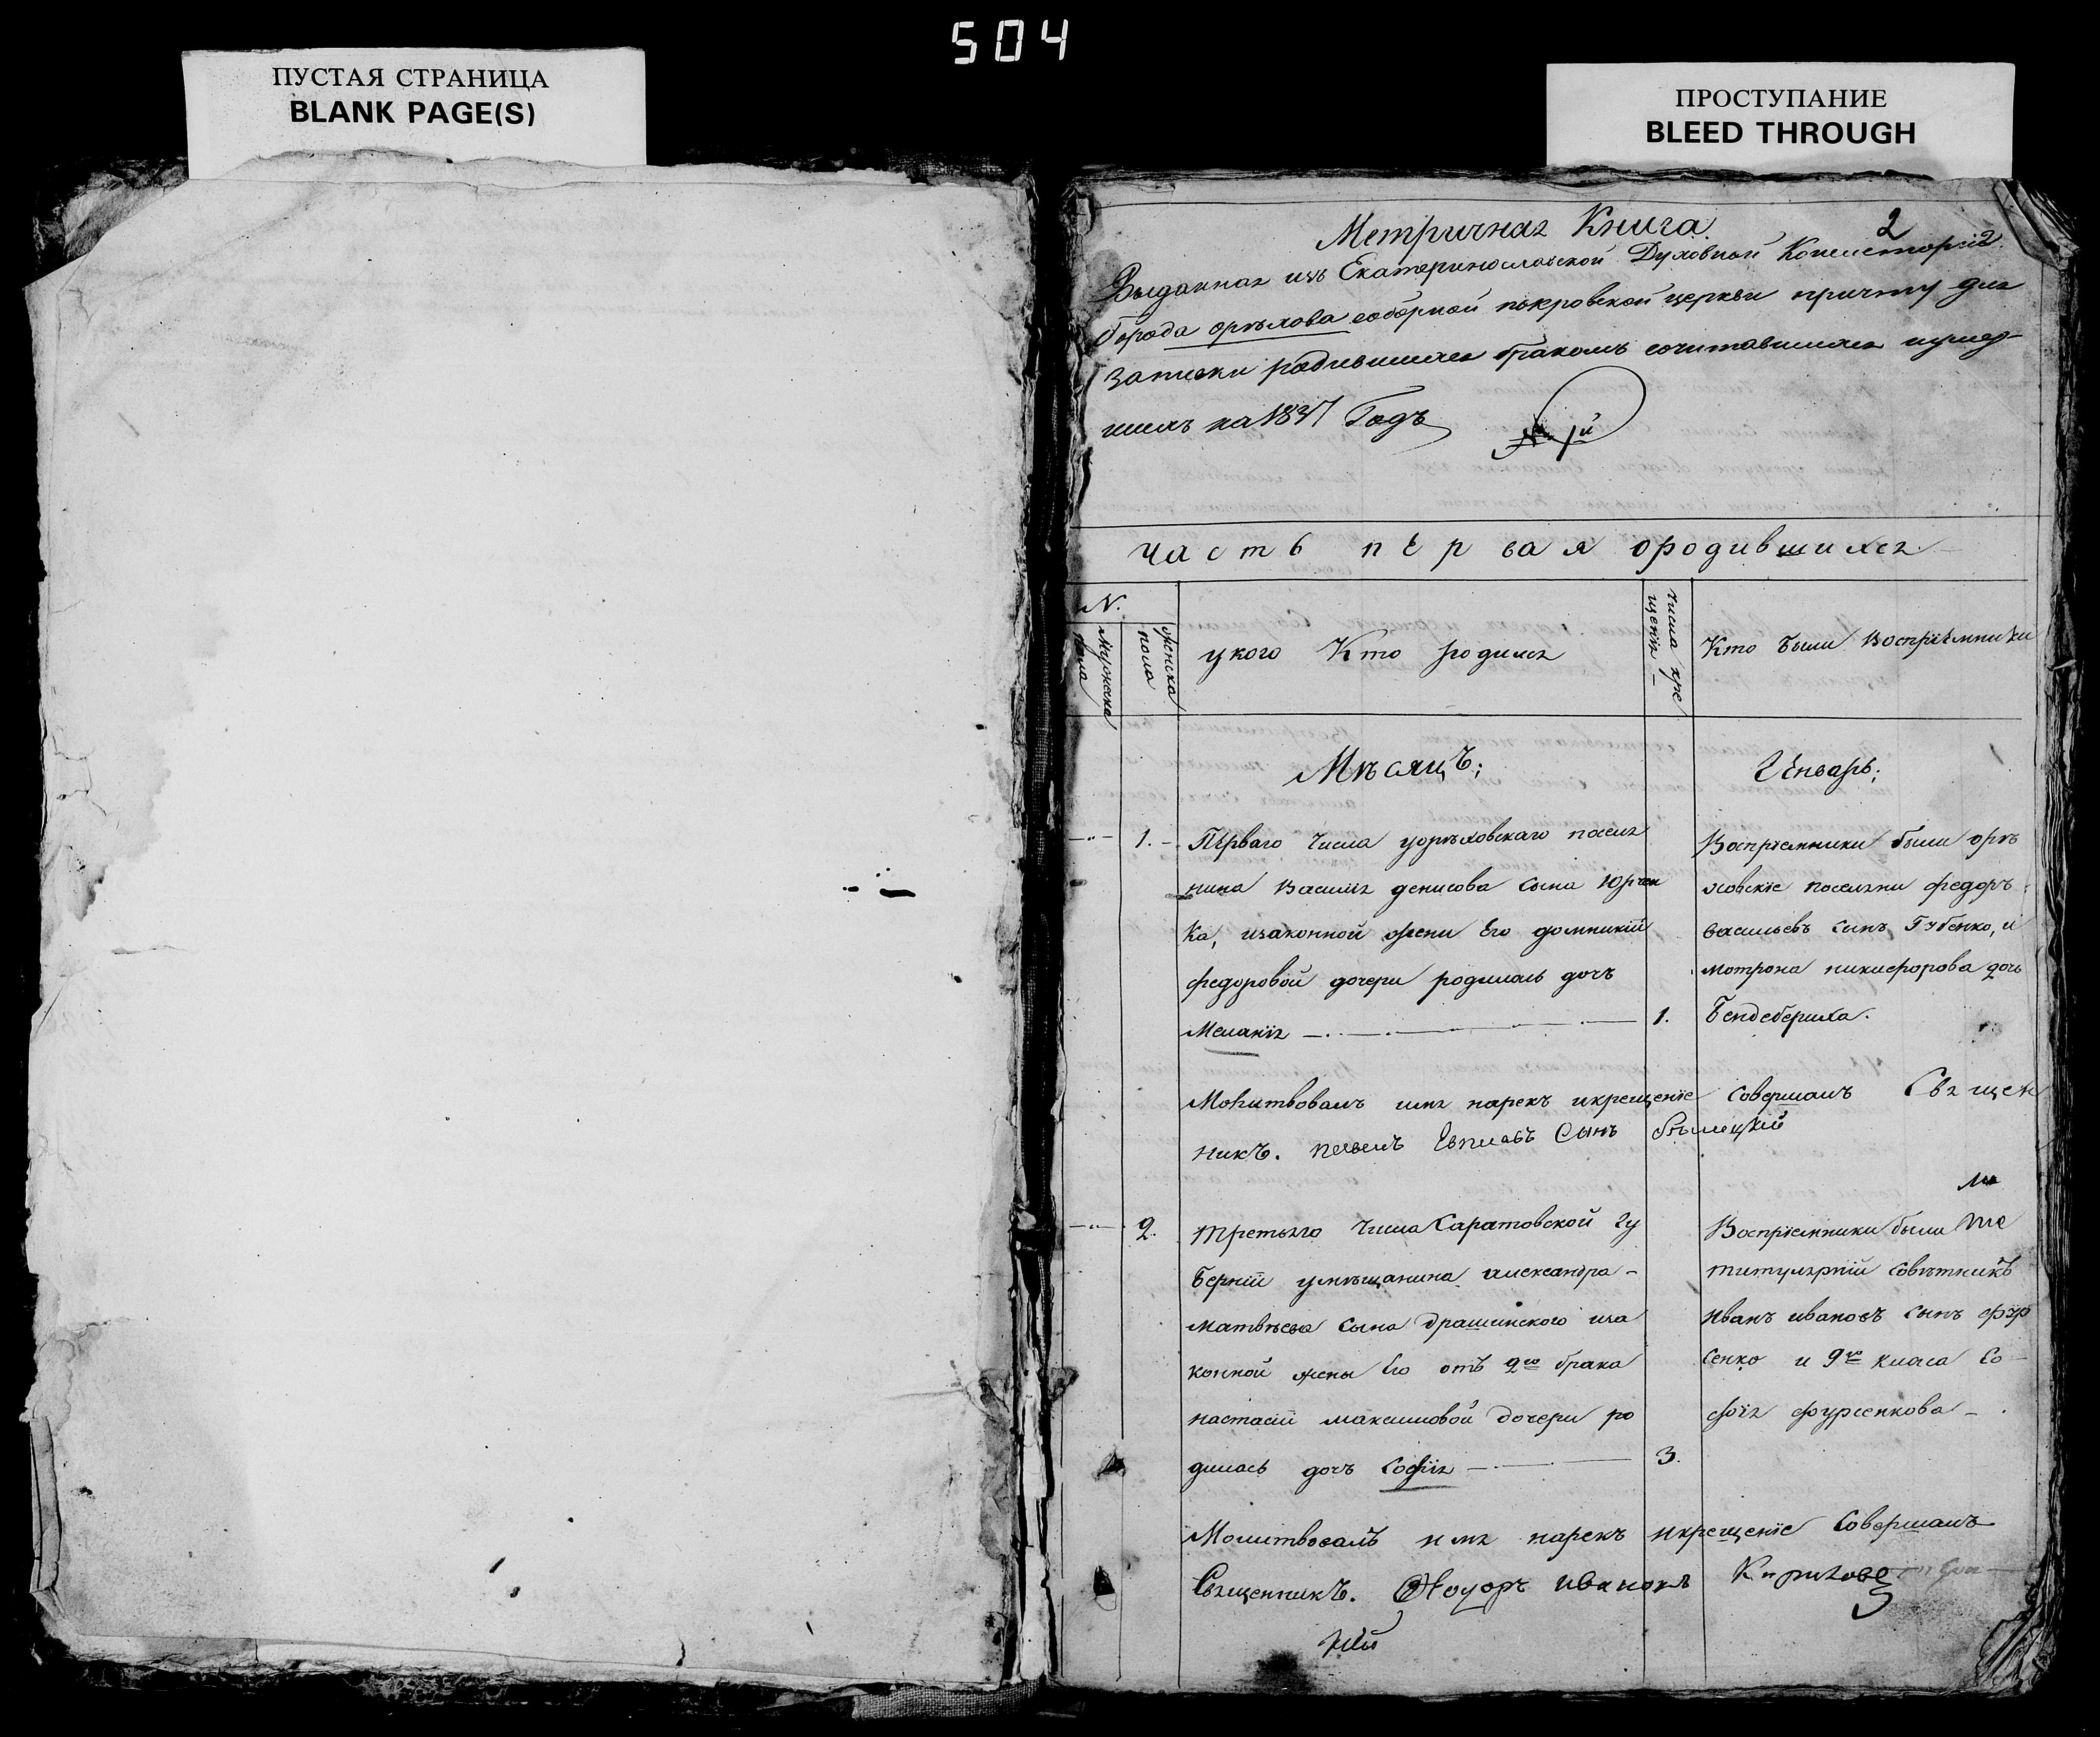 504
ПУСТАЯ СТРАНИЦА
BLANK PAGE(S)
ПРОСТУПАНИЕ
BLEED THROUGH
2
Метричная Книга
Выданная изъ Екатеринославской Духовной Консисторіи
города орѣхова соборной покровской церкви причту для
записки родившихся бракомъ сочитавшихся иумер-
шихъ на 1837 Годъ
часть первая ородившихся
N.
Мужеска пола
женска пола
укого Кто родился
числа кре
щенія
Кто были Воспріѣмники
Мѣсяцъ;
Январь;
1.
Перваго числа уорѣховскаго поселя
нина Василія денисова сына Юрчен
ка, изаконной жени Его домникій
федоровой дочери родилась дочь
Меланія
1.
Воспріемники были орѣ
ховскіе поселяни федоръ
васильевъ сынъ Губенко, и
мотрона никифорова дочь
Бендебериха.
Молитвовалъ имя нарекъ икрещеніе совершалъ Священ
никъ. павелъ Сынъ
2.
третьяго числа Саратовской гу
берніи умѣщанина александра
матвѣева сына драшинского иза
конной жены Его отъ 2го брака
настасіи максимовой дочери ро
дилась дочь Софія
3.
Воспріемники были
титулярній совѣтникъ
Иванъ ивановъ сынъ фур
сенко и 9го класа Со
фія фурсенкова
Молитвовалъ имя нарекъ икрещеніе Совершалъ
Священникъ. Ѳеодоръ ивановъ